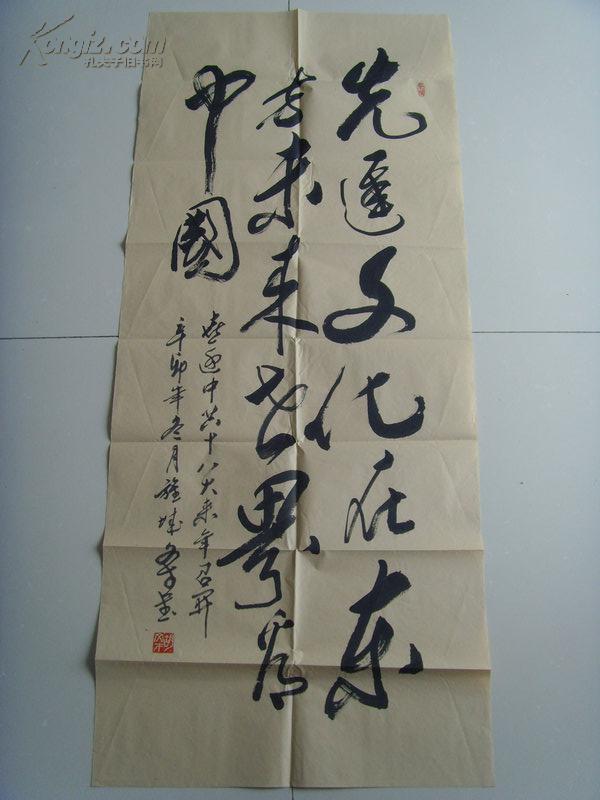 先進文化在東
方未来世界看
中國
喜迎中共十八大来年召开
辛卯年冬月
Kongfz.com
孔夫子旧书网